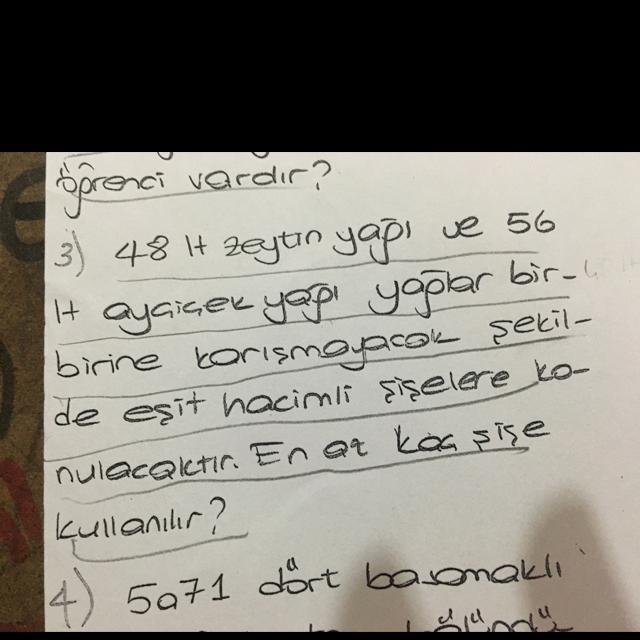 öğrenci vardır?
3) 48 lt zeytin yağı ve 56
lt ayçiçek yağı yağlar bir-
birine karışmayacak şekil-
de eşit hacimli şişelere ko-
nulacaktır. En az kaç şişe
kullanılır?
4) 5a71 dört basamaklı